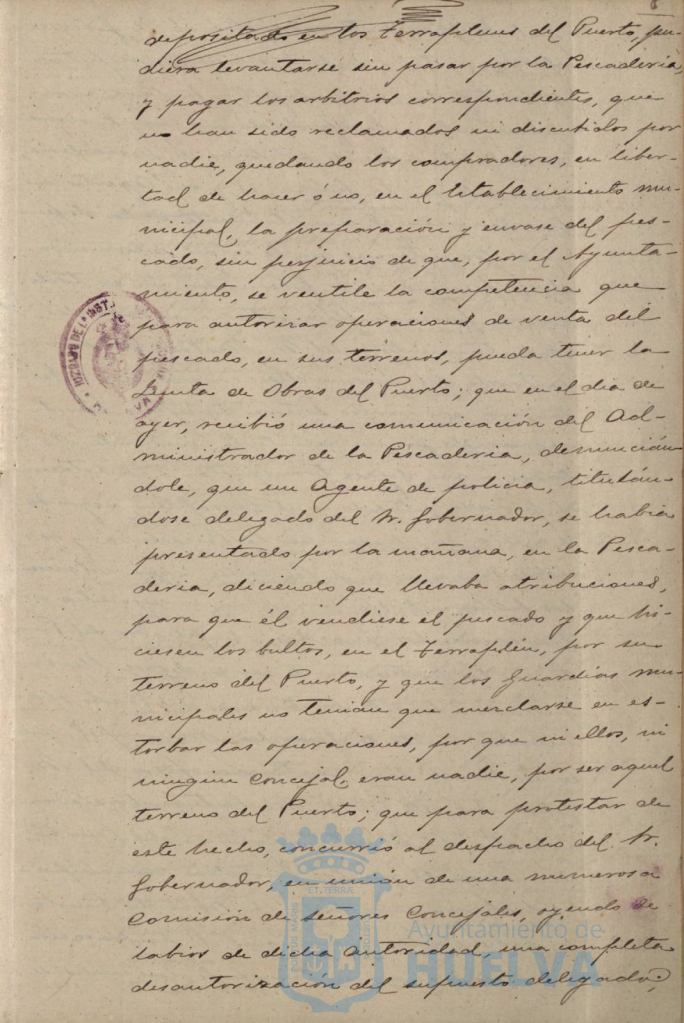 6
depositado en los Terraplenes del Puerto, pu-
diera levantarse sin pasar por la Pescaderia,
y pagar los arbitrios correspondientes, que
no han sido reclamados ni discutidos por
nadie, quedando los compradores, en liber-
tad de hacer ó no, en el Establecimiento mu-
nicipal, la preparación y envase del pes-
cado, sin perjuicio de que, por el Ayunta-
miento, se ventile la competencia que
para autorizar operaciones de venta del
pescado, en sus terrenos, pueda tener la
Junta de Obras del Puerto; que en el dia de
ayer, recibió una comunicación del Ad-
ministrador de la Pescaderia, denuncián-
dole, que un Agente de policia, titulán-
dose delegado del Sr. Gobernador, se habia
presentado por la mañana, en la Pesca-
deria, diciendo que llevaba atribuciones,
para que él vendiese el pescado y que hi-
ciesen los bultos, en el Terraplén, por su
terreno del Puerto, y que los Guardias mu-
nicipales no tenian que mezclarse en es-
torbar las operaciones, por que ni ellos, ni
ningun Concejal, eran nadie, por ser aquel
terreno del Puerto; que para protestar de
este hecho, concurrió al despacho del Sr.
Gobernador, en unión de una numerosa
Comisión de señores Concejales, oyendo de
labios de dicha autoridad, una completa
desautorización del supuesto delegado,
JUZGADO DE
ET TERRÆ
Ayuntamiento de
HUELVA